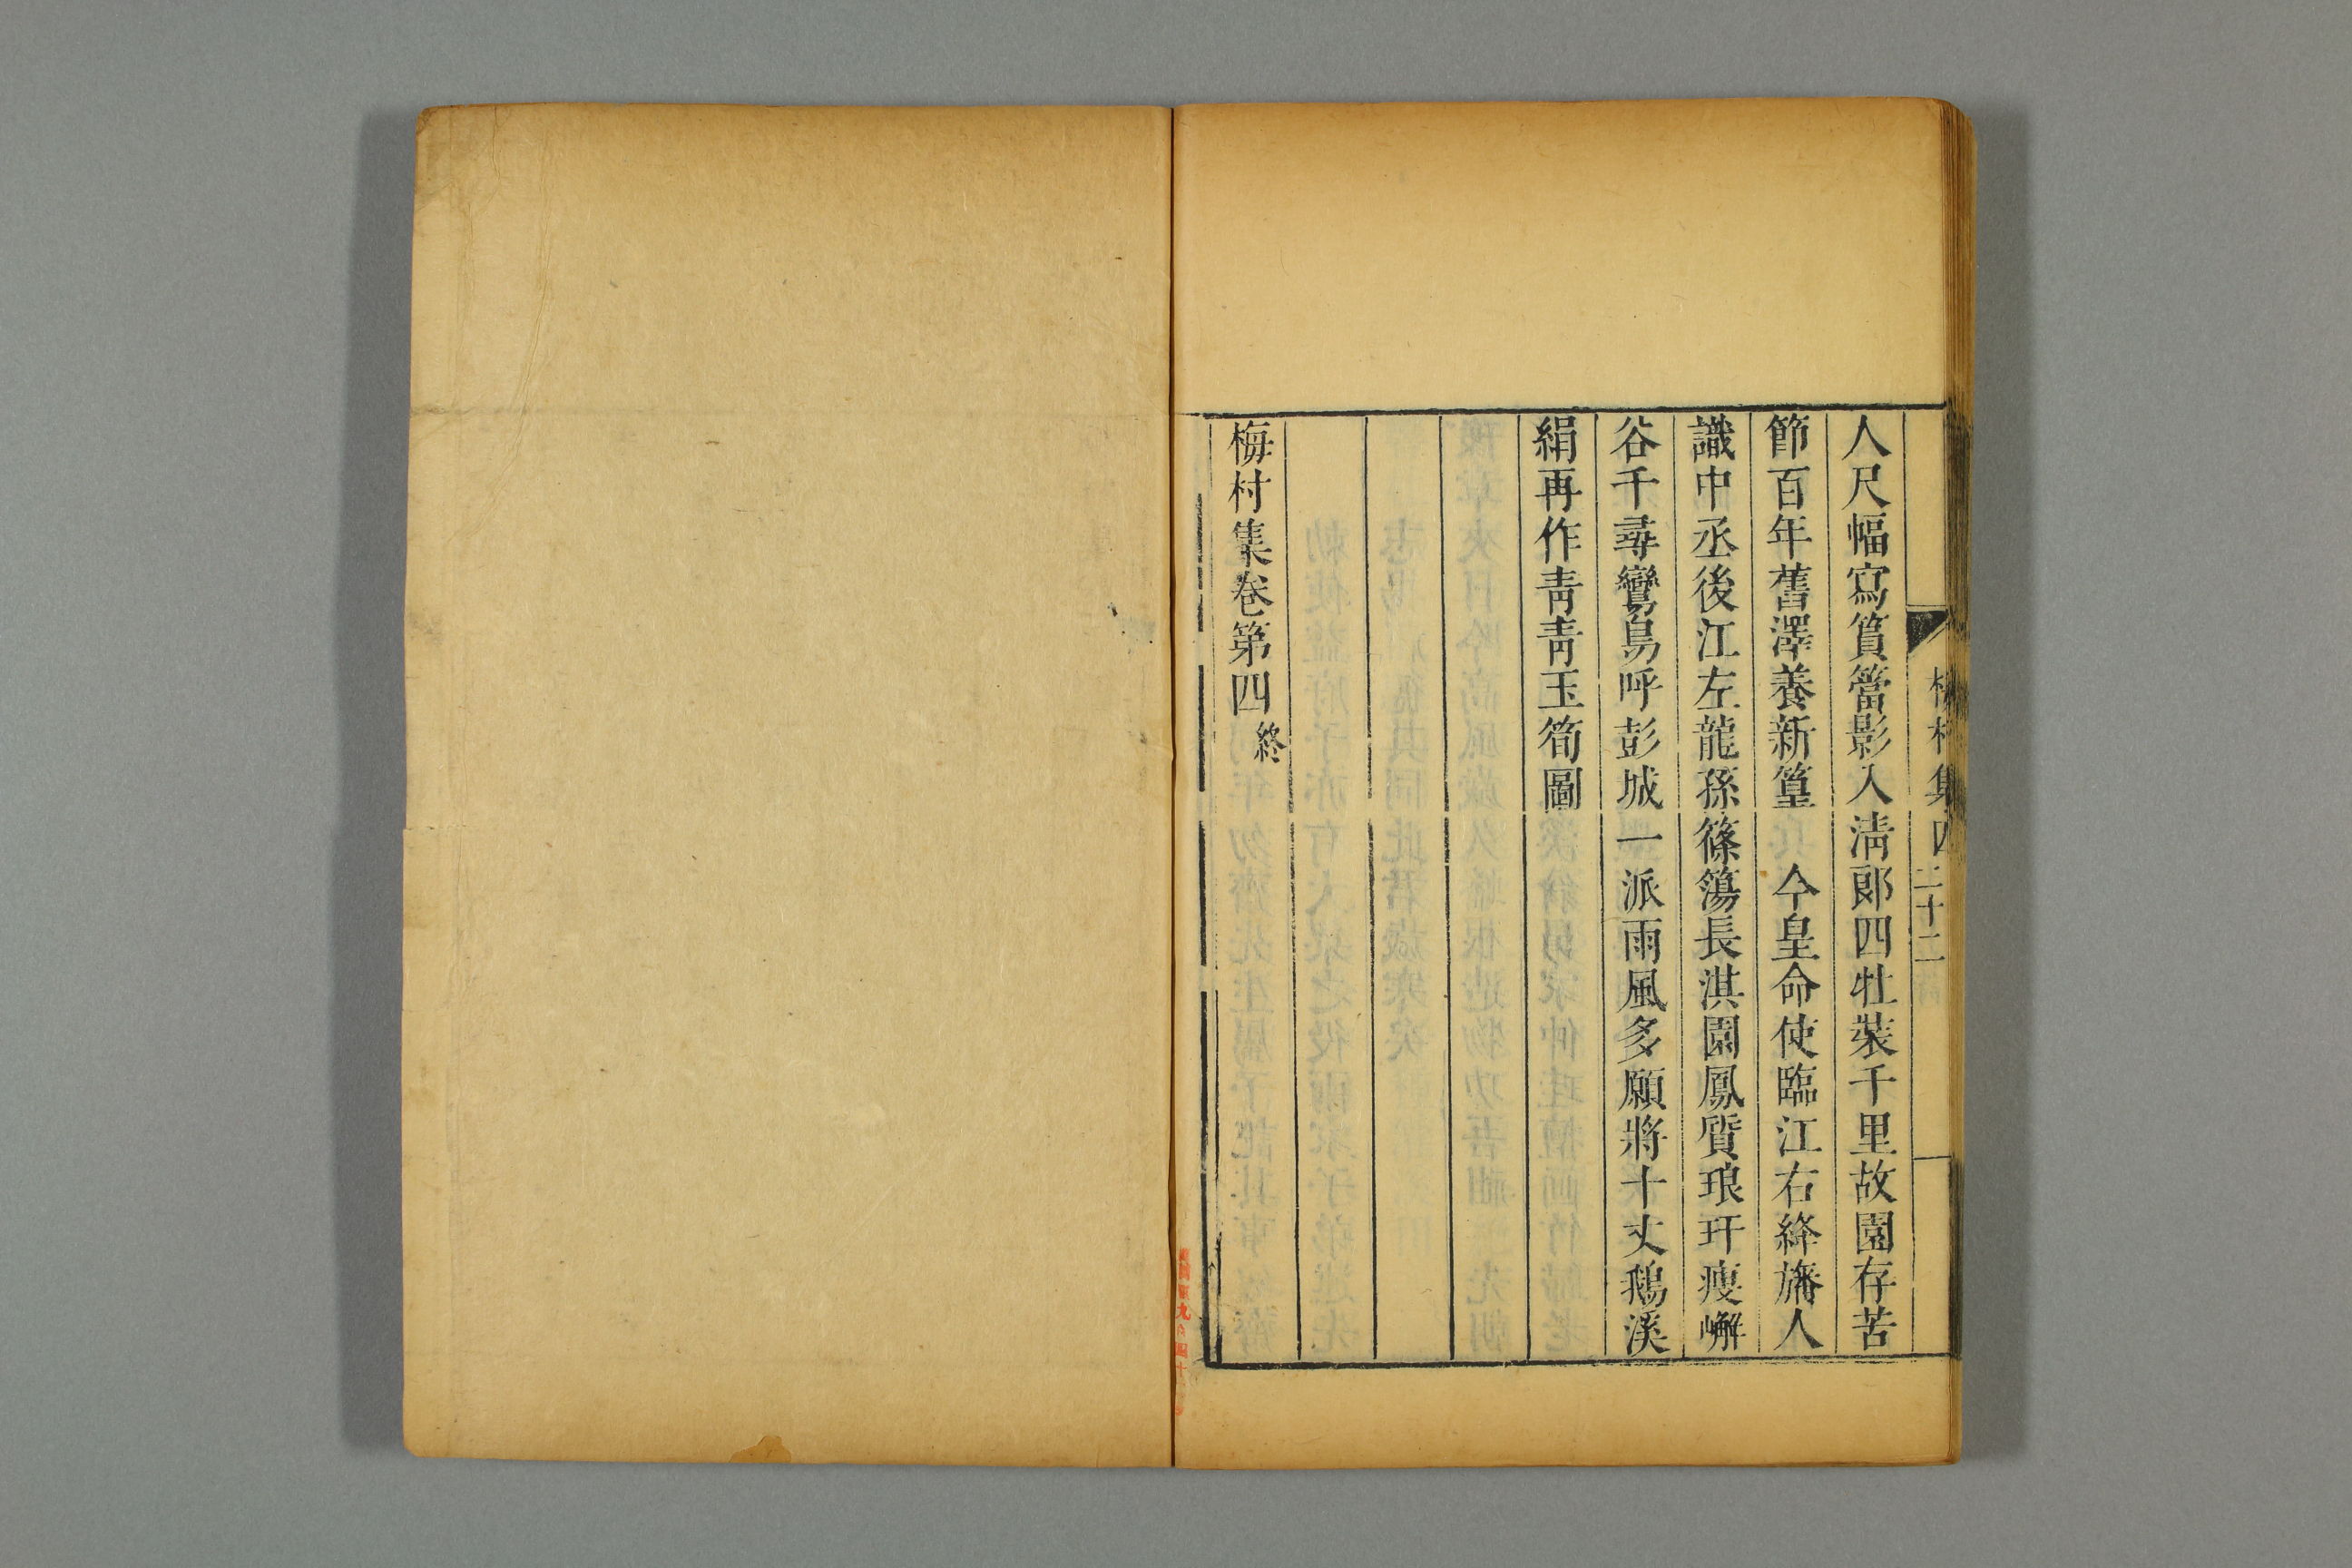 梅村集 四 二十二
人尺幅寫篔簹影入淸郞四牡裝千里故園存苦
節百年舊澤養新篁 今皇命使臨江右絳旛人
識中丞後江左龍孫篠簜長淇園鳳質琅玕瘦嶰
谷千尋鸞鳥呼彭城一派雨風多願將十丈鵝溪
絹再作靑靑玉筍圖
梅村集卷第四終